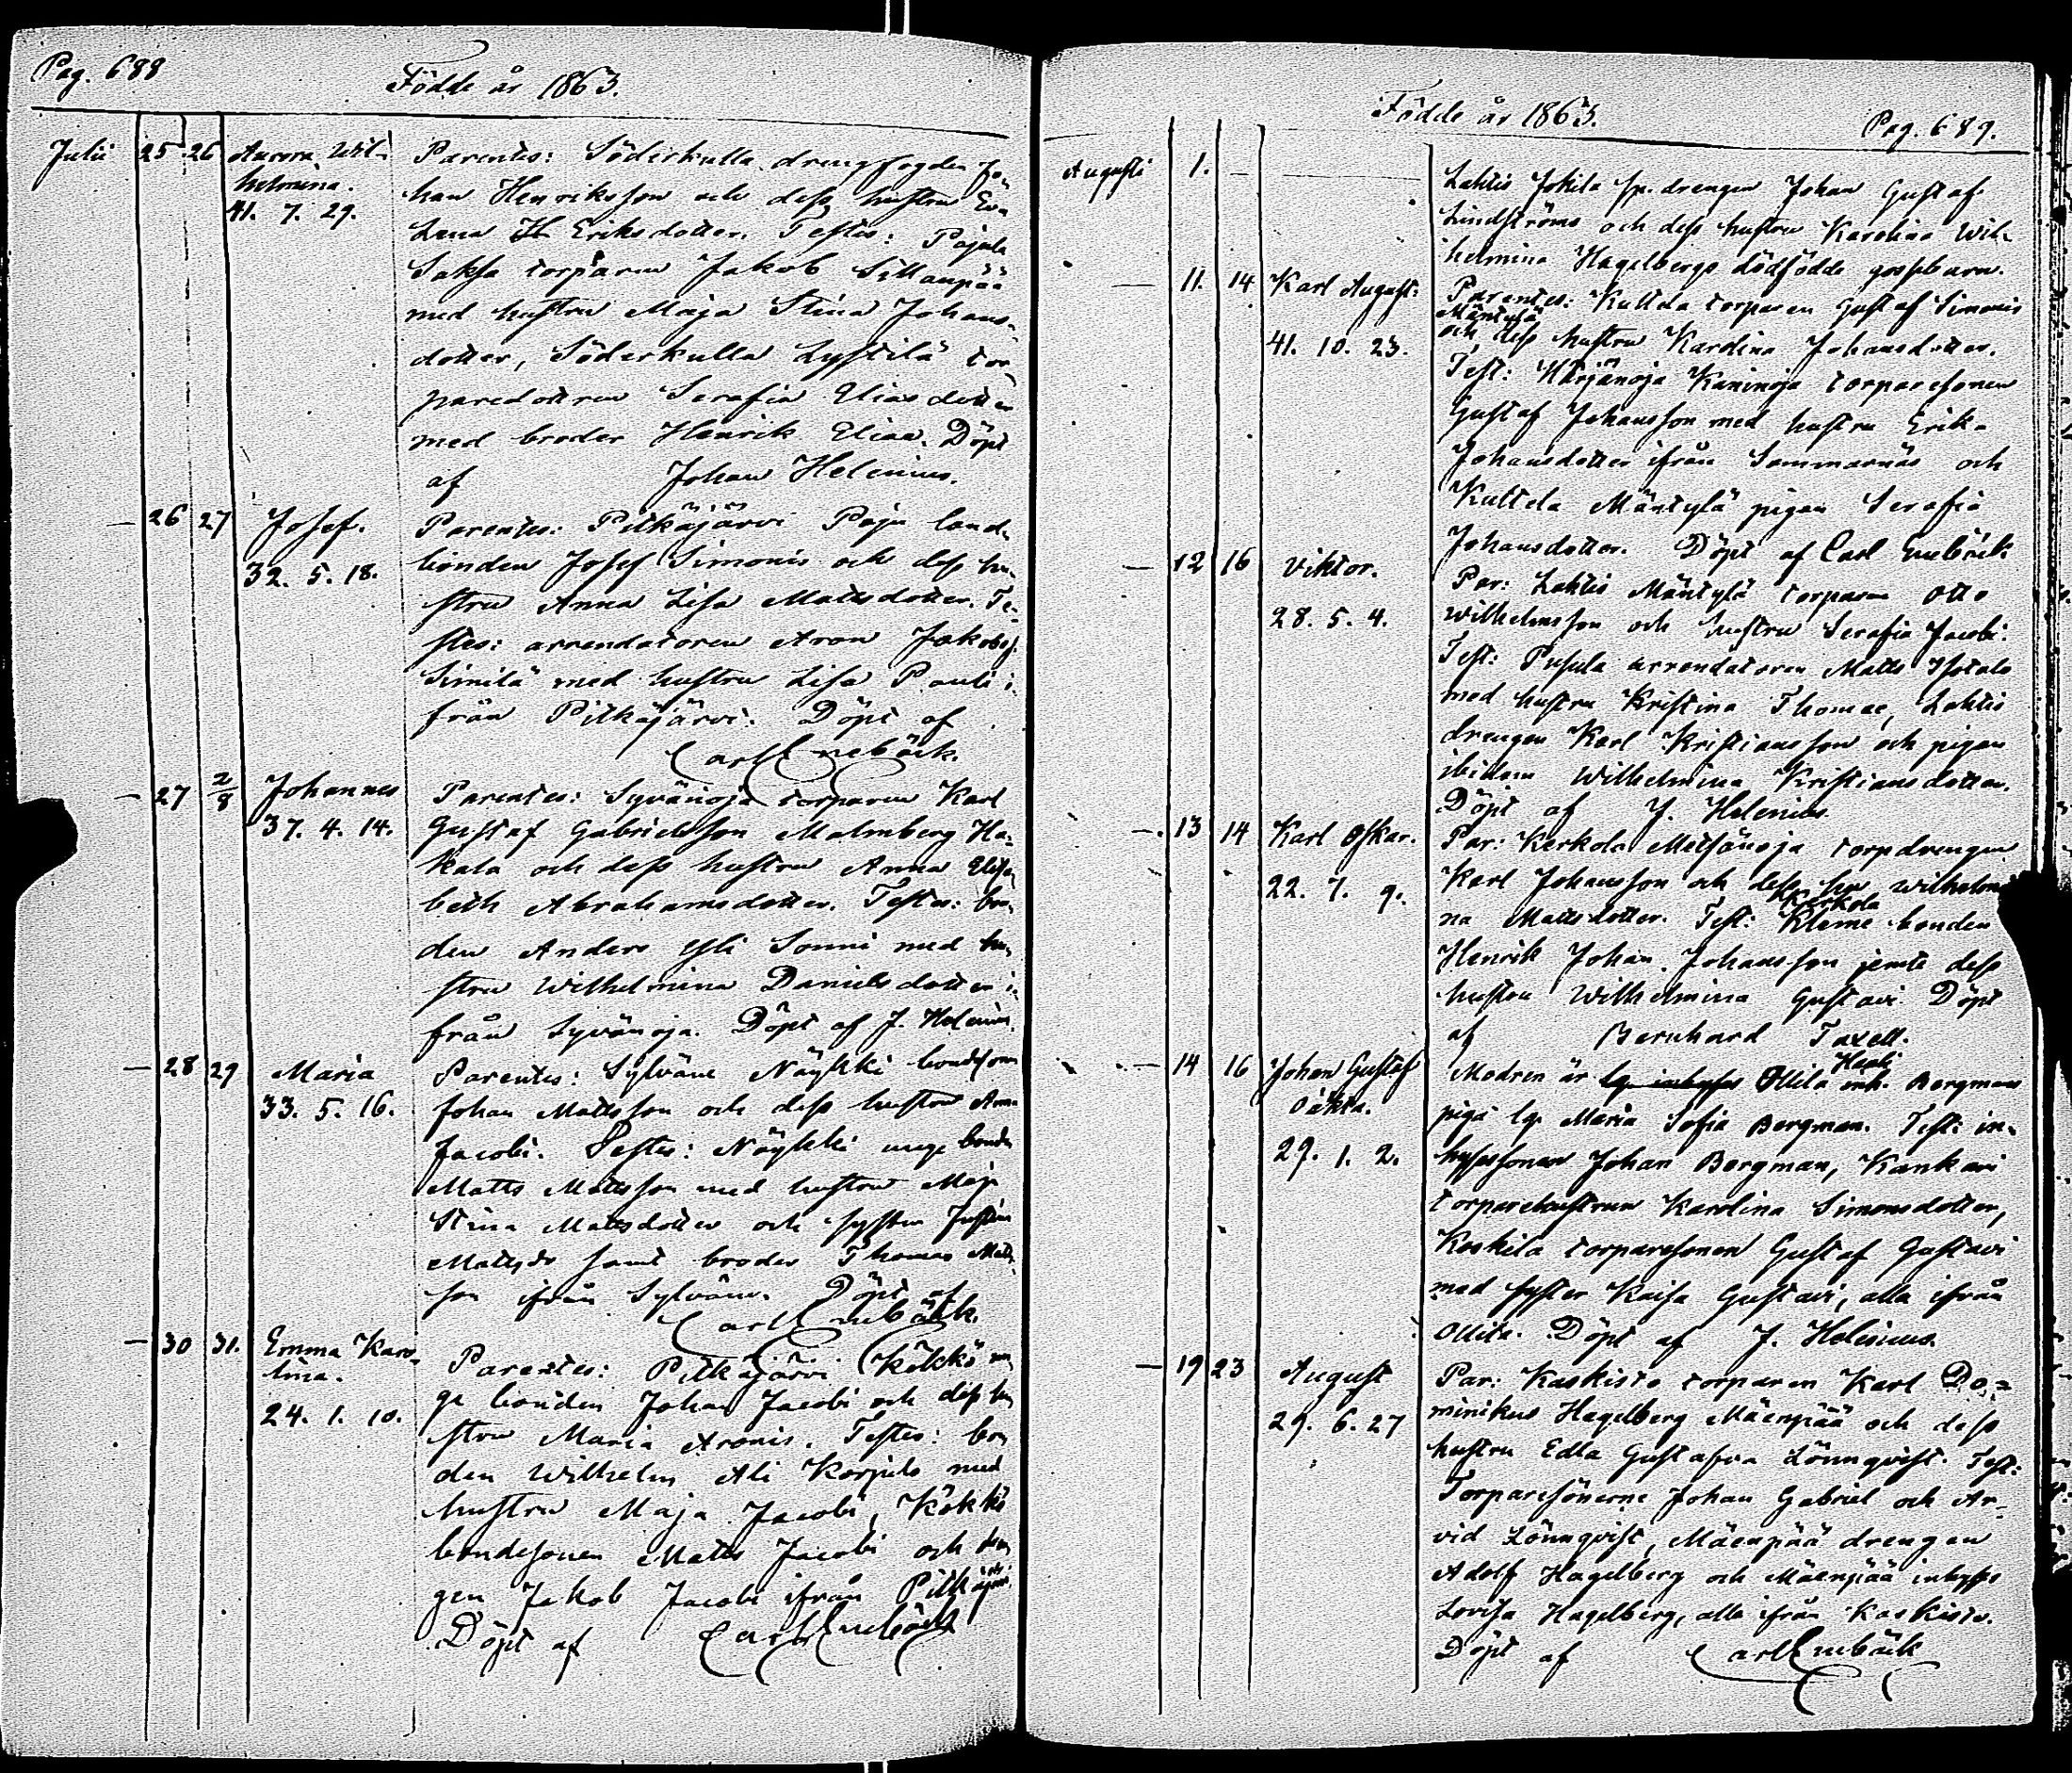 Pag. 688
Födde år 1863.
Julii 25 26 Aurora Wil-
helmina.
41. 7. 29.
Parentes: Söderkulla drengfogden Jo-
han Henriksson och dess hustru Eva
Lena Eriksdotter. Testes: Pajula
Saksa torparen Jakob Sillanpää
med hustru Maja Stina Johans-
dotter, Söderkulla Lystilä tor-
paredottren Serafia Eliasdotter
med broder Henrik Elias. Döpt
af Johan Helenius.
— 26 27 Josef.
32. 5. 18.
Parentes: Pitkäjärvi Paju land-
bonden Josef Simonis och dess hu-
stru Anna Lisa Mattsdotter. Te-
stes: arrendatoren Aron Jakobss.
Simila med hustru Lisa Pauli i-
från Pitkäjärvi. Döpt af
Carl Enebäck.
— 27 2/8 Johannes
37. 4. 14.
Parentes: Syvänoja torparen Karl
Gustaf Gabrielsson Malmberg Ha-
kala och dess hustru Anna Elisa-
beth Abrahamsdotter. Testes: bon-
den Anders Yli Sonni med hu-
stru Wilhelmina Danielsdotter i-
från Syvänoja. Döpt af J. Helenius.
— 28 29 Maria
33. 5. 16.
Parentes: Sylväne Näykki bondeson
Johan Mattsson och dess hustru Anna
Jacobi. Testes: Näykki unge bonden
Matts Mattsson med hustru Maja
Stina Mattsdotter och syster Justina
Mattsdr samt broder Thomas Matts-
son ifrån Sylväne. Döpt af
Carl Enebäck.
— 30 31. Emma Karo-
lina.
24. 1. 10.
Parentes: Pitkäjärvi Kökkö un-
ge bonden Johan Jacobi och dess hu-
stru Maria Aronis. Testes: bon-
den Wilhelm Ali Korpela med
hustru Maja Jacobi, Kökkö
bondesonen Matts Jacobi och dren-
gen Jakob Jacobi ifrån Pitkäjärvi.
Döpt af Carl Enebäck
Födde år 1863.
Pag. 689.
Augusti 1. —
Lahtis Jokila sp. drengen Johan Gustaf
Lindströms och dess hustru Karolina Wil-
helmina Hagelbergs dödfödde gossebarn.
— 11. 14 Karl August.
41. 10. 23.
Parentes: Kultela torparen Gustaf Simonis
Mäntylä
och dess hustru Karolina Johansdotter.
Test: Härjänoja Kaninoja torparesonen
Gustaf Johansson med hustru Erika
Johansdotter ifrån Sommarnäs och
Kultela Mäntylä pigan Serafia
Johansdotter. Döpt af Carl Enebäck
— 12 16 Viktor.
28. 5. 4.
Par: Lahtis Mäntylä torparen Otto
Wilhelmsson och hustru Serafia Jacobi.
Test: Pusula arrendatoren Matts Isotalo
med hustru Kristina Thomae, Lahtis
drengen Karl Kristiansson och pigan
ibidem Wilhelmina Kristiansdotter.
Döpt af J. Helenius.
— 13 14 Karl Oskar.
22. 7. 9.
Par: Kerkola Metsänoja torpdrengen
Karl Johansson och dess hu Wilhelmi-
na Mattsdotter. Test: Kerkola Kleme bonden
Henrik Johan Johansson jemte dess
hustru Wilhelmina Gustavi. Döpt
af Bernhard Taxell.
— 14 16 Johan Gustaf
oäkta.
29. 1. 2.
Modren är Ollila inh. Bergmans
piga lp. Maria Sofia Bergman. Test: in-
hysessonen Johan Bergman, Kankari
torparehustrun Karolina Simonsdotter,
Koskila torparesonen Gustaf Gustavi
med syster Kaisa Gustavi, alla ifrån
Ollila. Döpt af J. Helenius.
— 19 23 August
29. 6. 27
Par: Kaskisto torparen Karl Do-
minikus Hagelberg Mäenpää och dess
hustru Edla Gustafva Lönnqvist. Test:
Torparesönerne Johan Gabriel och Ar-
vid Lönnqvist, Mäenpää drengen
Adolf Hagelberg och Mäenpää inhyses
Lovisa Hagelberg, alla ifrån Kaskisto.
Döpt af Carl Enebäck